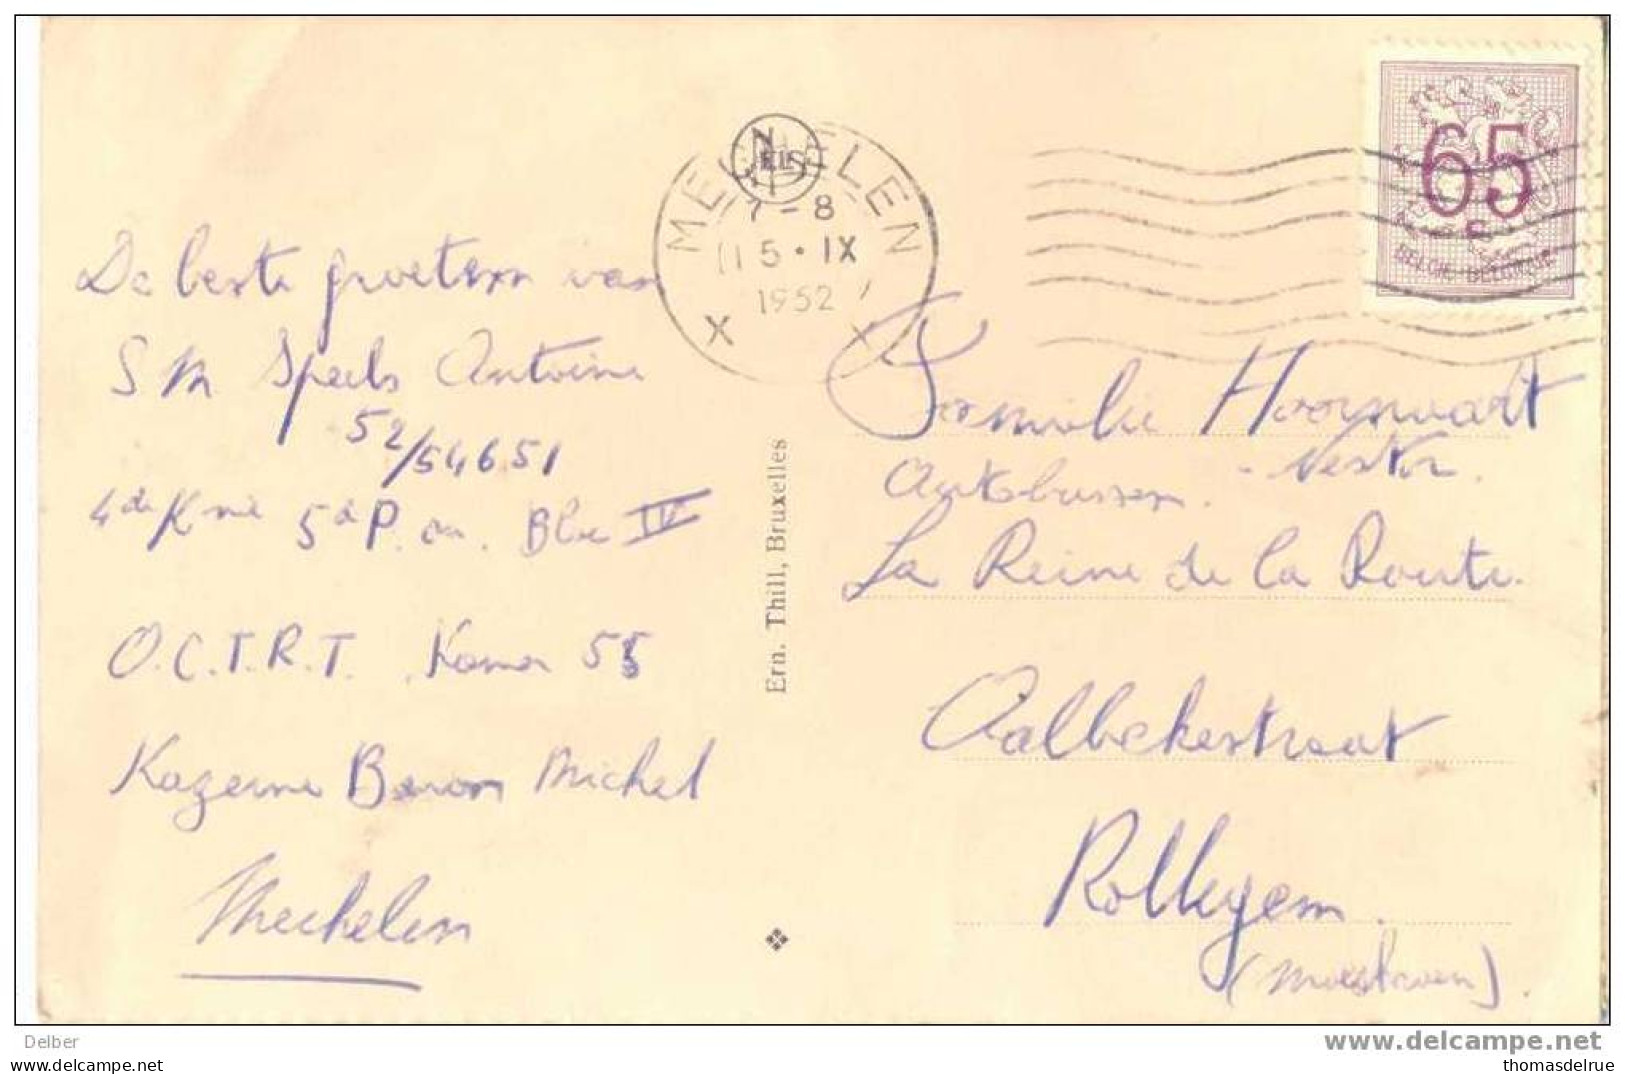 De beste groeten van
S M Speels Antoine
52/54651
4de Knie 5de P. on. Bloc IV
O.C.T.R.T. Kamer 55
Kazerne Baron Michel
Mechelen
NELS
MECHELEN
7-8
15·IX
1952
X X
Ern. Thill, Bruxelles
65
BELGIE-BELGIQUE
Familie Hoornaert
Nestor.
Autobussen.
La Reine de la Route.
Aalbekestraat
Rollegem.
(Moeskroen).
Delber
www.delcampe.net
thomasdelrue